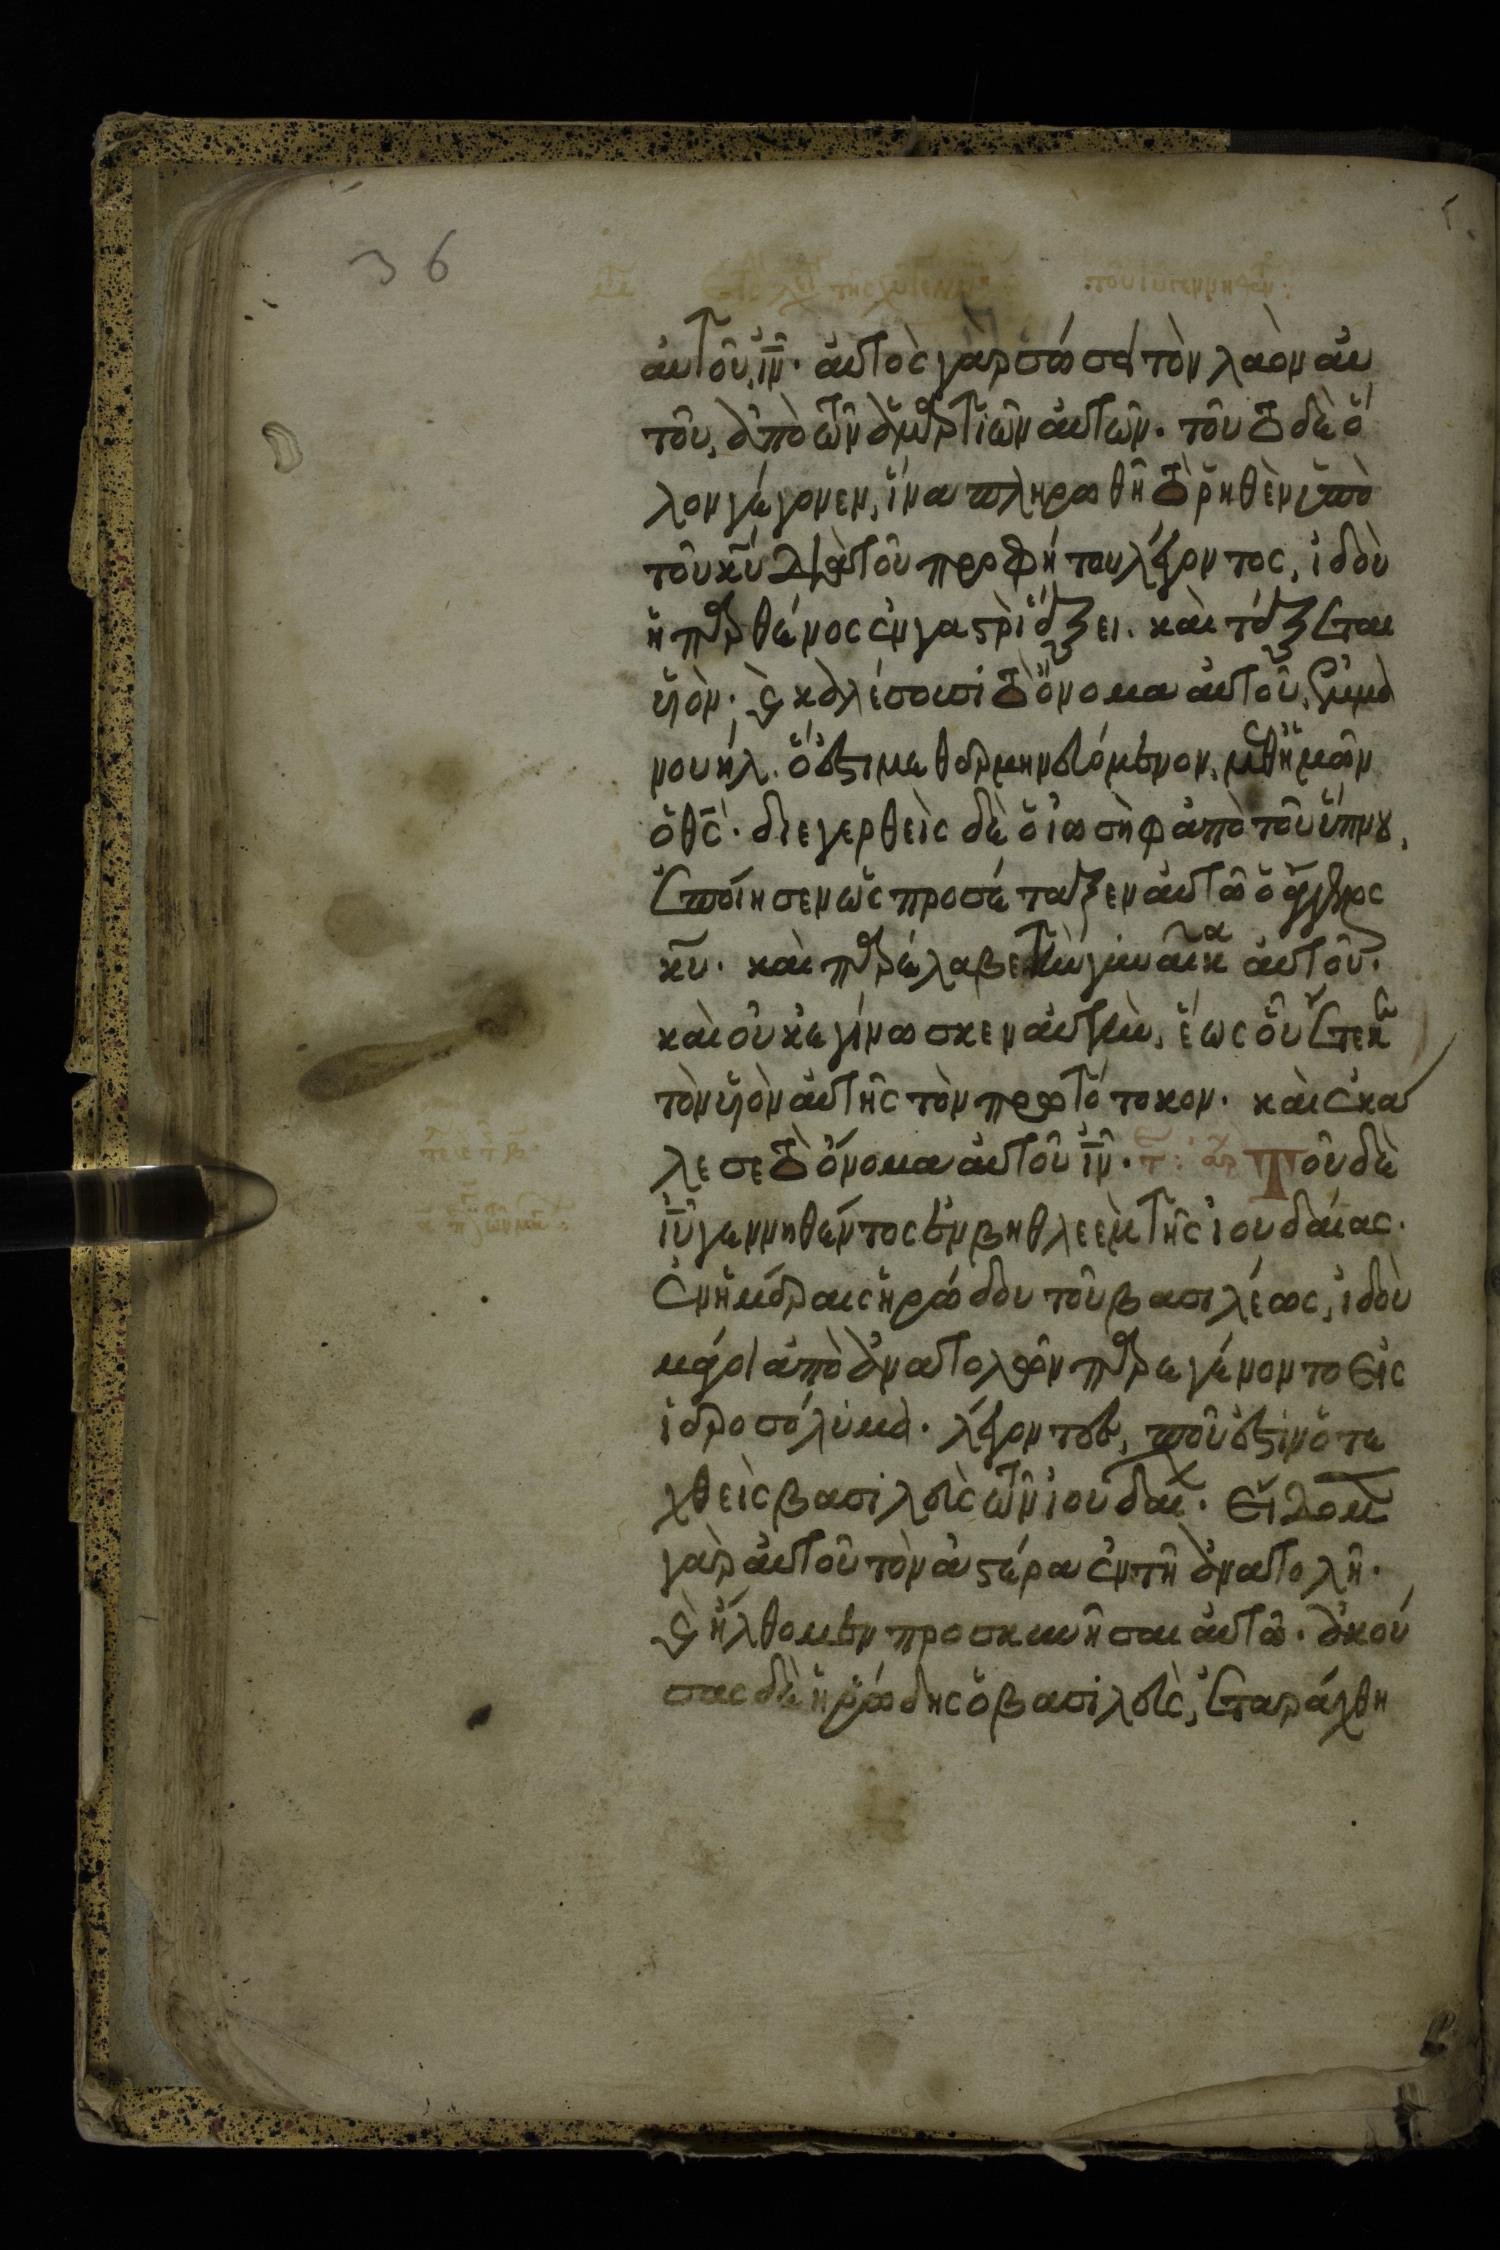 36
αὐτοῦ, ιν̅. αὐτὸς γὰρ σώσει τὸν λαὸν αὐ
τοῦ, ἀπὸ τῶν ἁμαρτιῶν αὐτῶν. τοῦτο δὲ ὅ
λον γέγονεν, ἵνα πληρωθῆ τὸ ῥηθὲν ὑπὸ
τοῦ κυ̅ διὰ τοῦ προφήτου λέγοντος, ἰδοὺ
ἡ παρθένος ἐν γαστρὶ ἕξει. καὶ τέξεται
υἱὸν. καὶ καλέσουσι τὸ ὄνομα αὐτοῦ, ἐμμα
νουήλ. ὅ ἐστι μεθερμηνευόμενον, μεθ ἡμῶν
ὁ θς̅. διεγερθεὶς δὲ ὁ ἰωσὴφ ἀπὸ τοῦ ὕπνου,
ἐποίησεν ὡς προσέταξεν αὐτῶ ὁ ἄγγελος
κυ̅. καὶ παρέλαβε τὴν γυναῖκα αὐτοῦ.
καὶ οὐκ ἐγίνωσκεν αὐτὴν, ἕως οὗ ἔτεκε
τὸν υἱὸν αὐτῆς τὸν πρωτότοκον. καὶ ἐκα
λεσε τὸ ὄνομα αὐτοῦ ιν̅. Τοῦ δὲ
ιυ̅ γεννηθέντος ἐν βηθλεὲμ τῆς ἰουδαίας.
ἐν ἡμέραις ἡρώδου τοῦ βασιλέως, ἰδοὺ
μάγοι ἀπὸ ἀνατολῶν παρεγένοντο εἰς
ἱεροσόλυμα. λέγοντες, ποῦ ἐστὶν ὁ τε
χθεὶς βασιλεὺς τῶν ἰουδαίων. εἴδομεν
γὰρ αὐτοῦ τὸν ἀστέρα ἐν τῆ ἀνατολῆ.
καὶ ἤλθομεν προσκυνῆσαι αὐτῶ. ἀκού
σας δὲ ἡρώδης ὁ βασιλεὺς, ἐταράχθη